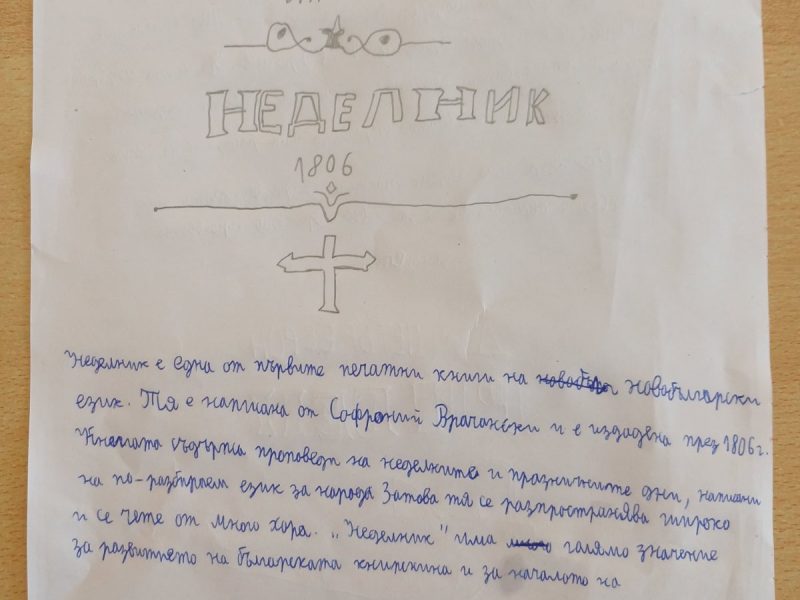 НЕДЕЛНИК
1806
Неделник е една от първите печатни книги на новобългарски
език. Тя е написана от Софроний Врачански и е издадена през 1806г.
Книгата съдържа проповеди на неделните и празничните дни, написани
на по-разбираем език за народа Затова тя се разпространява широко
и се чете от много хора. „Неделник" има голямо значение
за развитието на българската книжнина и за началото на